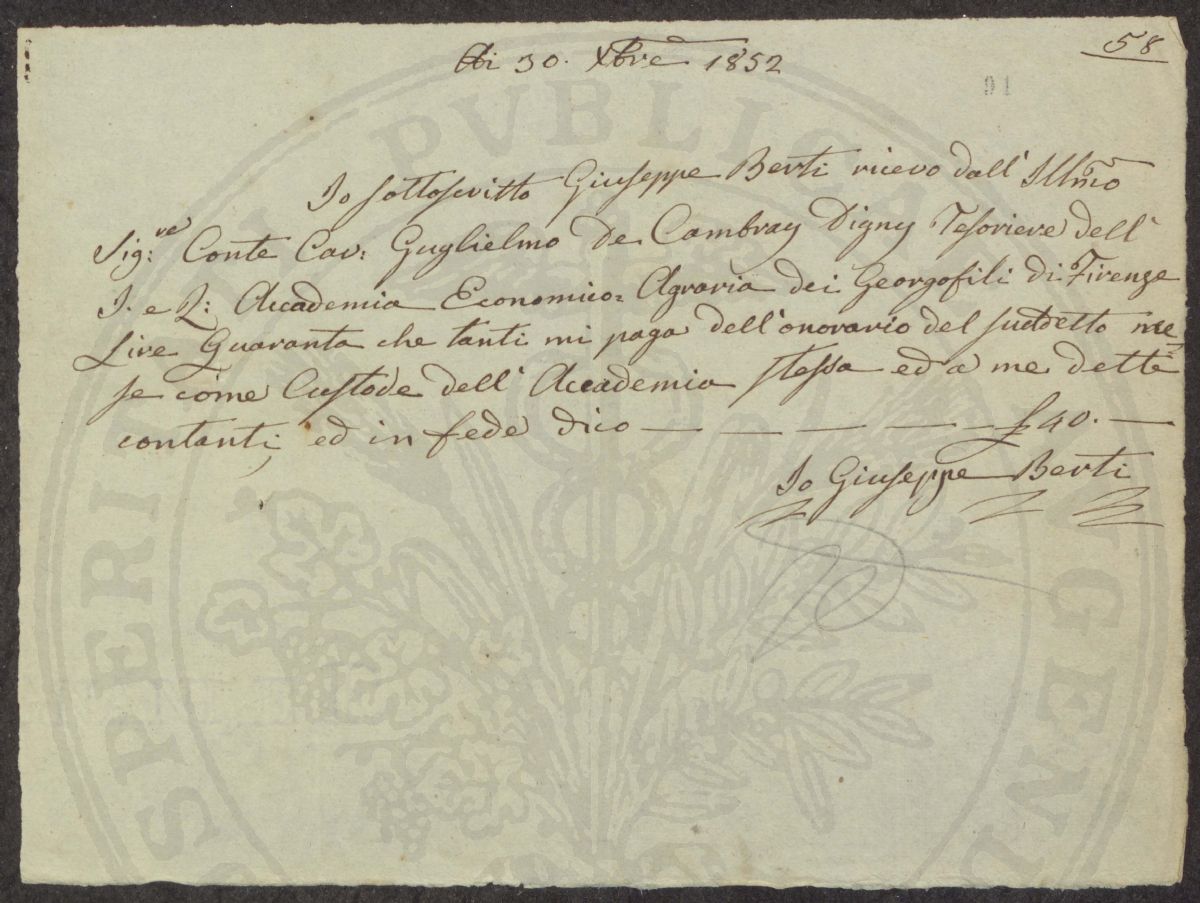 58
Adi 30. Xbre 1852
91
Io sottoscritto Giuseppe Berti ricevo dall' Illmo
Sig:re Conte Cav: Guglielmo De Cambray Digny Tesoriere dell'
I. e R: Accademia Economico= Agraria dei Georgofili di Firenze
Lire Quaranta che tanti mi paga dell'onorario del suddetto me=
se come Custode dell' Accademia stessa ed a me detti
contanti, ed in fede dico — — — — — £ 40. —
Io Giuseppe Berti
PROSPERITATI PVBLICAE AVGENDAE